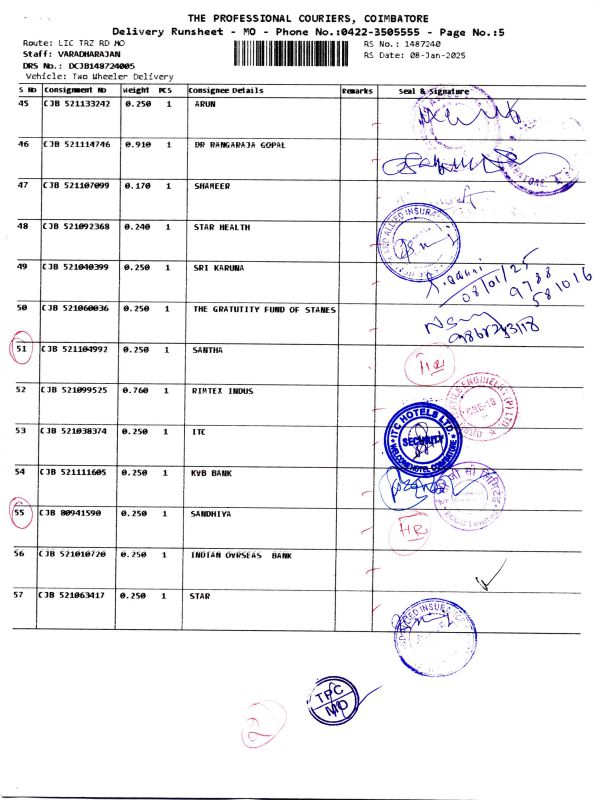 THE PROFESSIONAL COURIERS, COIMBATORE
Delivery Runsheet - MO - Phone No.:0422-3505555 - Page No.:5
Route: LIC TRZ RD MO RS No.: 1487240
Staff: VARADHARAJAN RS Date: 08-Jan-2025
DRS No.: DCJB148724005
Vehicle: Two Wheeler Delivery
S No Consignment No Weight PCS Consignee Details Remarks Seal & Signature
45 CJB 521133242 0.250 1 ARUN
46 CJB 521114746 0.910 1 DR RANGARAJA GOPAL
47 CJB 521107099 0.170 1 SHAMEER
48 CJB 521092368 0.240 1 STAR HEALTH
49 CJB 521040399 0.250 1 SRI KARUNA
08/01/25
9788
581016
50 CJB 521060036 0.250 1 THE GRATUTITY FUND OF STANES
51 CJB 521104992 0.250 1 SANTHA
52 CJB 521099525 0.760 1 RIMTEX INDUS
53 CJB 521038374 0.250 1 ITC
ITC HOTELS LTD.
SECURITY
WELCOMHOTEL COIMBATORE
54 CJB 521111605 0.250 1 KVB BANK
55 CJB 80941590 0.250 1 SANDHIYA
HR
56 CJB 521010720 0.250 1 INDIAN OVRSEAS BANK
57 CJB 521063417 0.250 1 STAR
TPC
MO
2